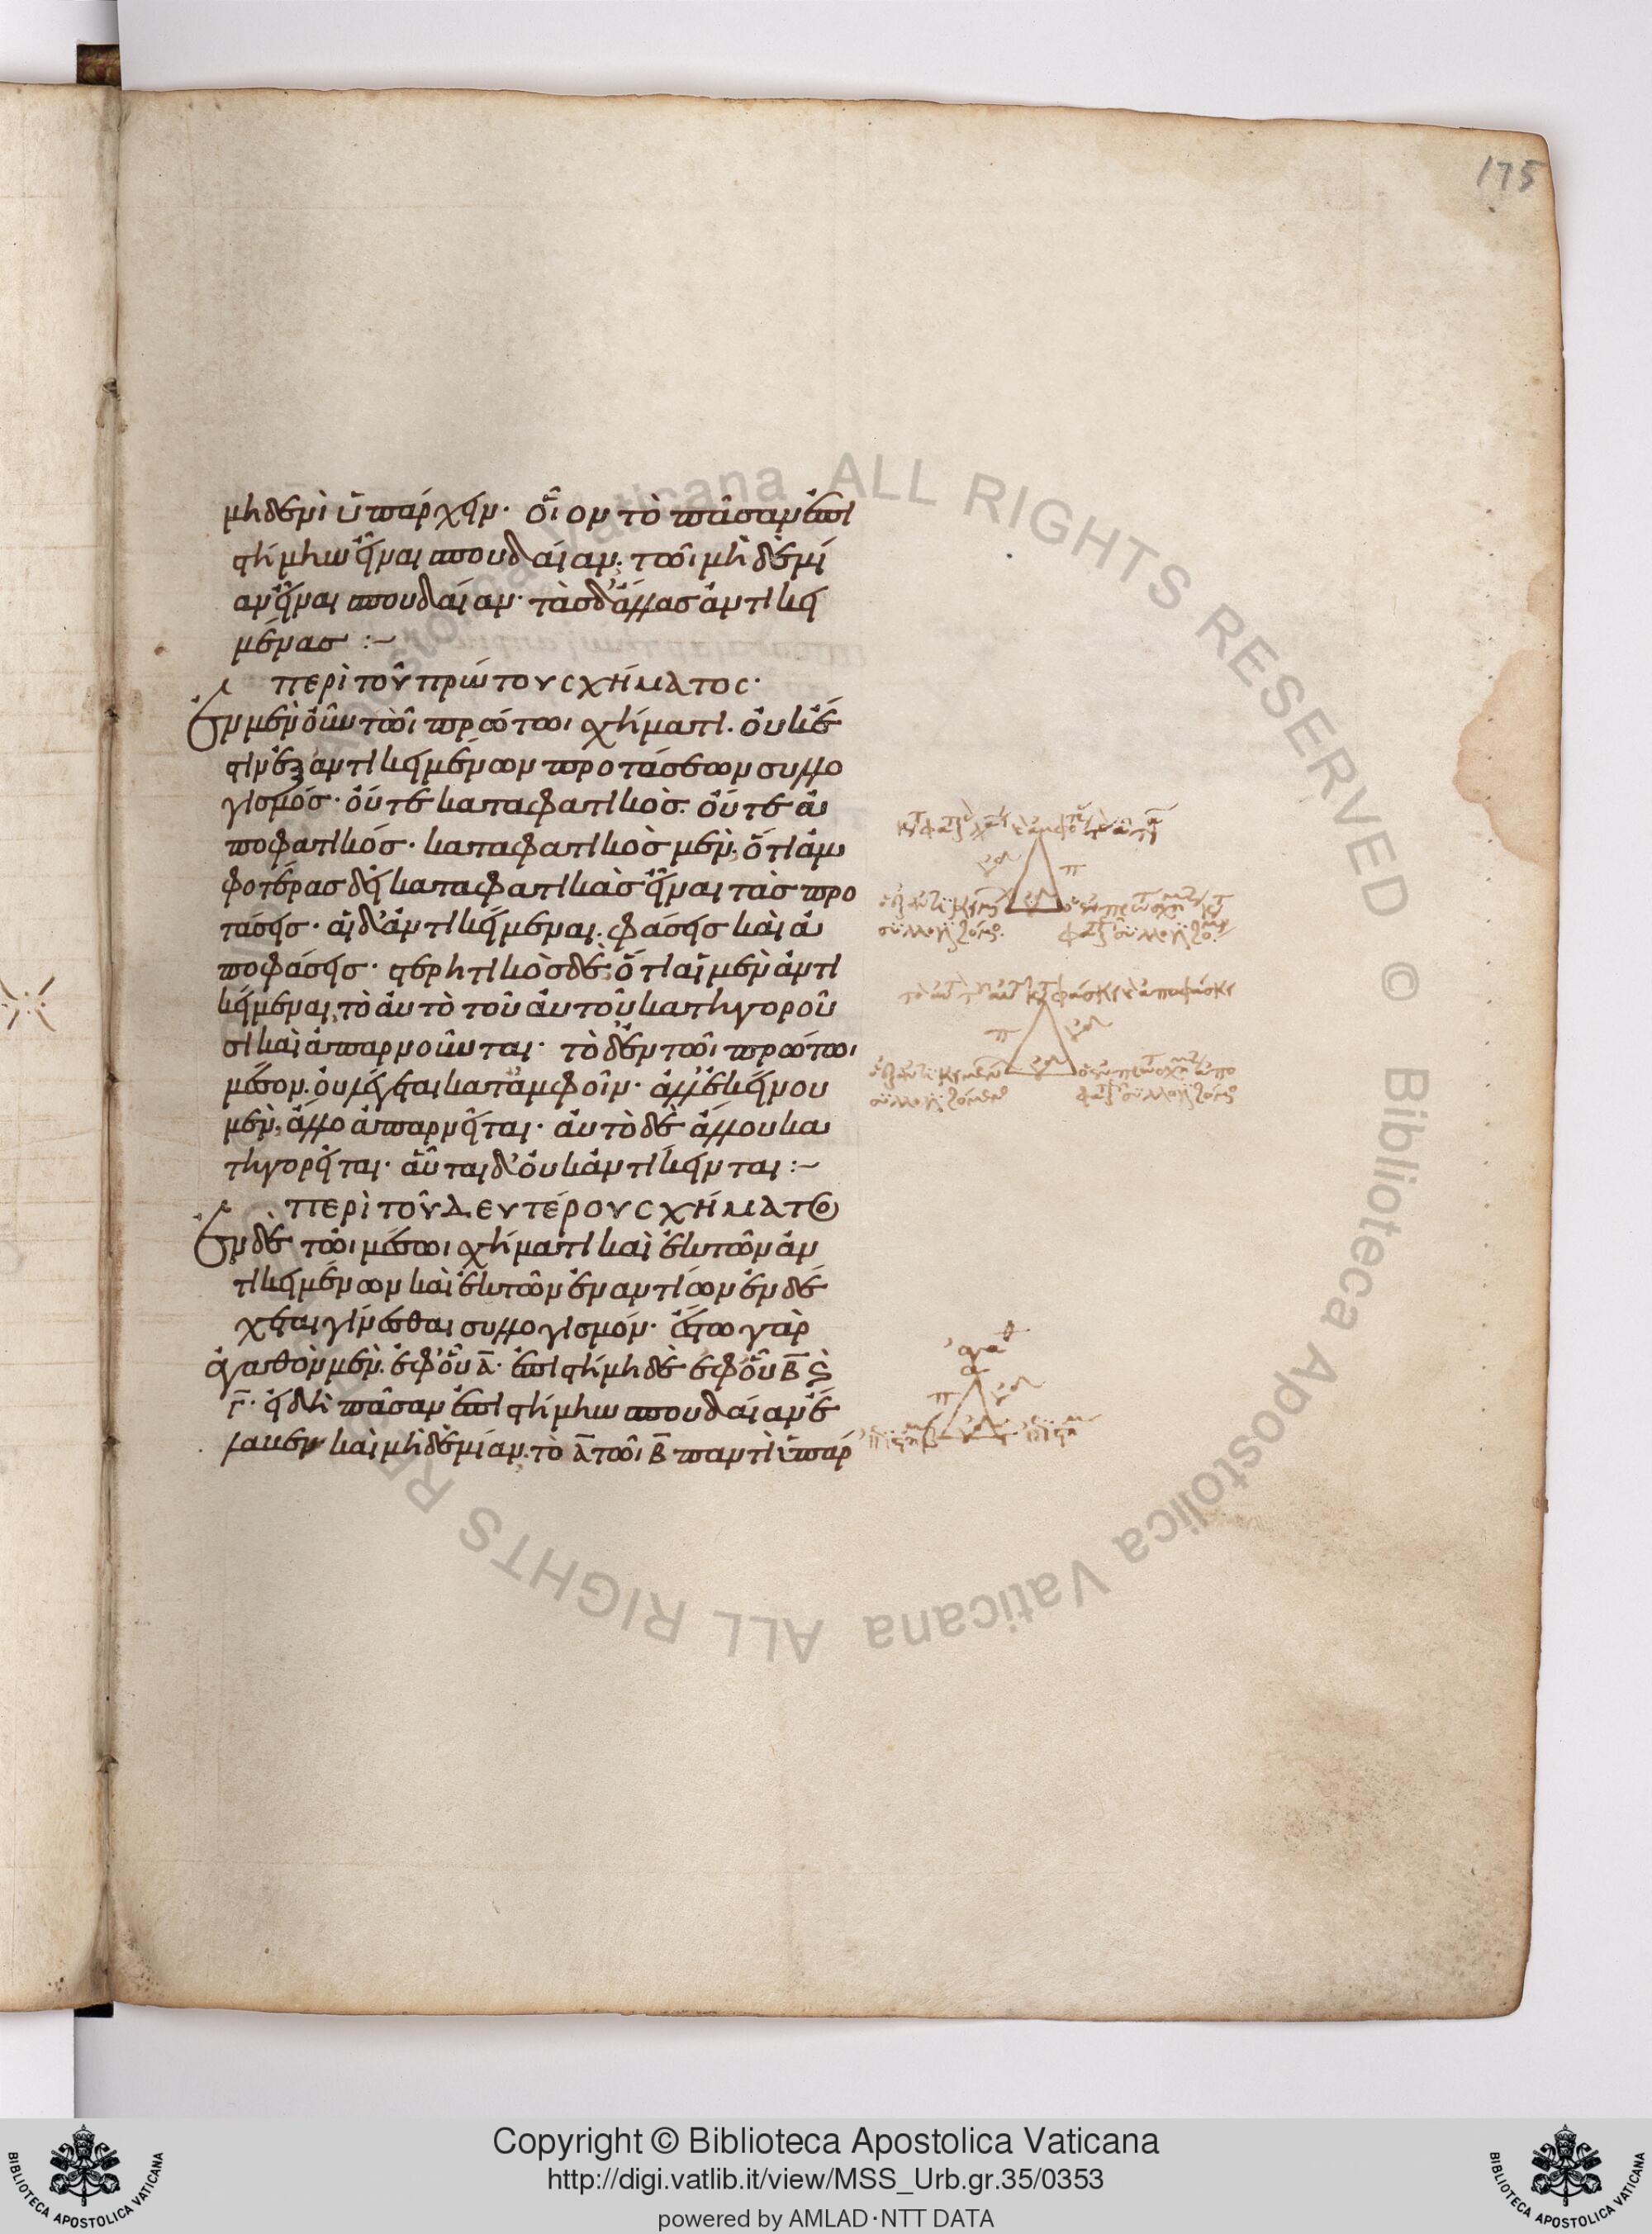 175
μηδενὶ ὑπάρχειν· οἷον τὸ πᾶσαν ἐπι
στήμην εἶναι σπουδαίαν· τῶι μηδεμί
αν εἶναι σπουδαίαν· τὰς δ' ἄλλας ἀντικει
μένας :~
περὶ τοῦ πρώτου σχήματος·
Ἐν μὲν οὖν τῶι πρώτωι σχήματι· οὐκ ἔ
στιν ἐξ ἀντικειμένων προτάσεων συλλο
γισμός· οὔτε καταφατικὸς· οὔτε ἀ
ποφατικός· καταφατικὸς μὲν· ὅτι ἀμ
φοτέρας δεῖ καταφατικὰς εἶναι τὰς προ
τάσεις· αἱ δ' ἀντικείμεναι· φάσεις καὶ ἀ
ποφάσεις· στερητικὸς δὲ· ὅτι αἱ μὲν ἀντι
κείμεναι, τὸ αὐτὸ τοῦ αὐτοῦ κατηγοροῦ
σι καὶ ἀπαρνοῦνται· τὸ δ' ἐν τῶι πρώτωι
μέσον· οὐ λέγεται κατ' ἀμφοῖν· ἀλλ' ἐκείνου
μὲν, ἄλλο ἀπαρνεῖται· αὐτὸ δὲ ἄλλου κα
τηγορεῖται· αὗται δ' οὐκ ἀντίκεινται :~
περὶ τοῦ δευτέρου σχήματος
Ἐν δὲ τῶι μέσωι σχήματι καὶ ἐκ τῶν ἀν
τικειμένων καὶ ἐκ τῶν ἐναντίων ἐνδέ
χεται γίνεσθαι συλλογισμόν· ἔστω γὰρ
ἀγαθὸν μὲν· ἐφ' οὗ Α̅· ἐπιστήμη δὲ ἐφ' οὗ Β̅ ϛ̀
Γ̅· εἰ δὴ πᾶσαν ἐπιστήμην σπουδαίαν ἔ
λαβεν καὶ μηδεμίαν· τὸ Α̅ τῶι Β̅ παντὶ ὑπάρ
Copyright © Biblioteca Apostolica Vaticana
http://digi.vatlib.it/view/MSS_Urb.gr.35/0353
powered by AMLAD·NTT DATA
BIBLIOTECA APOSTOLICA VATICANA
BIBLIOTECA APOSTOLICA VATICANA
Apostolica Vaticana ALL RIGHTS RESERVED © Biblioteca Apostolica Vaticana ALL RIGHTS RE